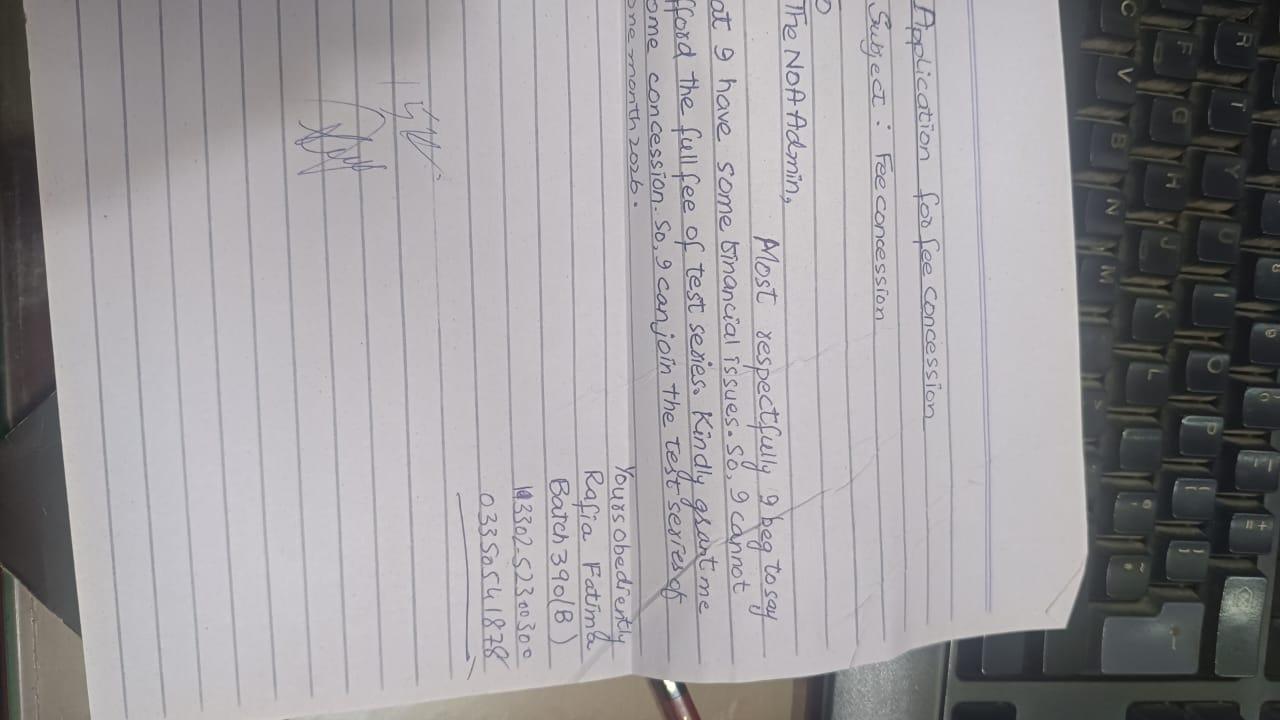 Application for fee concession
Subject : Fee concession
O
The NOA Admin,
Most respectfully I beg to say
at I have some financial issues. So, I cannot
fford the full fee of test series. Kindly grant me
ome concession. So, I can join the test series of
one month 2026.
Yours obediently
Rafia Fatima
Batch 390(B)
13302-5230030 0
03350541878